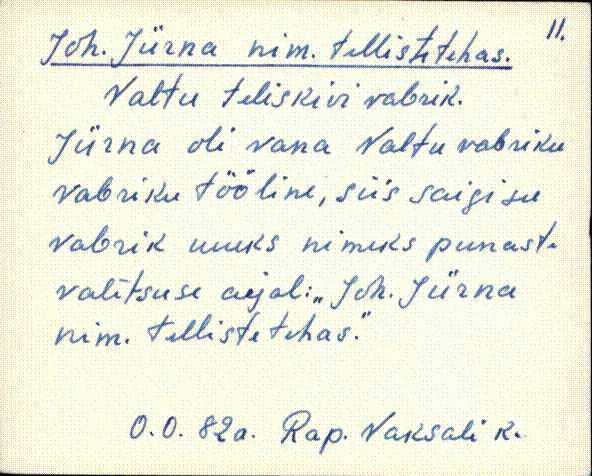 11.
Joh. Jürna nim. tellistetehas.
Valtu teliskivi vabrik.
Jürna oli vana Valtu vabriku
vabriku tööline, siis saigi su
vabrik uueks nimeks punaste
valitsuse aejal: „Joh. Jürna
nim. tellistetehas."
O.O. 82a. Rap. Vaksali k.